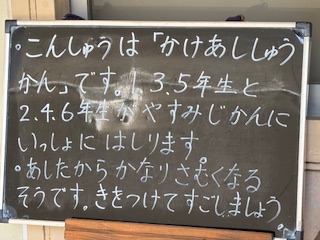 ・こんしゅうは「かけあししゅう
かん」です。1.3.5年生と
2.4.6年生がやすみじかんに
いっしょにはしります
・あしたからかなりさむくなる
そうです。きをつけてすごしましょう